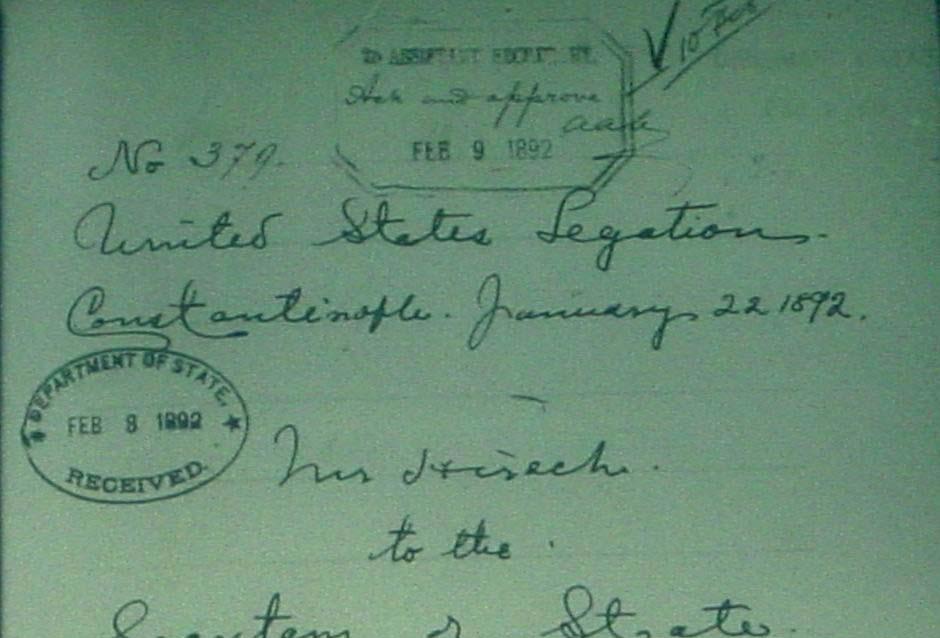 10 Feb
TO ASSISTANT SECRETARY.
Ack and approve
aaa
FEB 9 1892
No 379.
United States Legation.
Constantinople. January 22 1892.
DEPARTMENT OF STATE,
FEB 8 1892
RECEIVED.
Mr Hirsch.
to the
Secretary of State.